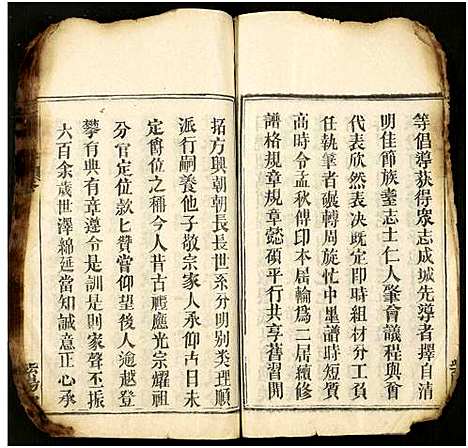 等倡導获得眾志成城先導者擇自清
明佳節族耋志士仁人肇會議程與會
代表欣然表決既定即時組材分工負
任執筆者輾轉周旋忙中畢譜時短質
高時令孟秋傅印本屆輪為二屆續修
譜格規章規章懿碩平行共享舊習開
拓方興朝朝長長世系分明別类理順
派行嗣養他子敬宗家人承仰古日未
定傳位之稱今人昔古禮應光宗耀祖
分官定位款匕赞當仰望後人逾越登
攀有典有章遵令是訓是則家聲不振
六百余歲世澤綿延當知誠意正心承